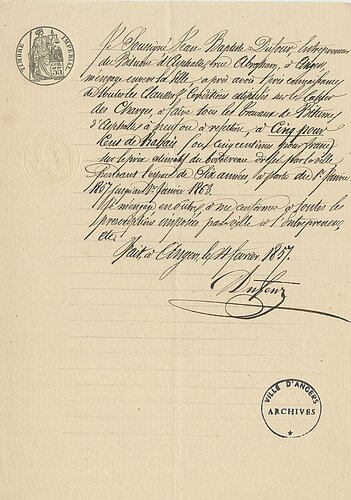 TIMBRE IMPÉRIAL
35
Je Soussigné Jean Baptiste Dufour, Entrepreneur
de Bitume et Asphalte, rue à Angers,
m'engage envers la Ville, après avoir pris connaissance
de toutes les Clauses & Conditions stipulées sur le Cahier
des Charges, à faire tous les travaux de Bitume
d'Asphalte à ou à refaire, à Cinq pour
Cent de Rabais (ou Cinq centimes pour franc)
sur le prix du bordereau par la ville,
Pendant l'espace de Six années, à partir du 1er Janvier
1857 jusqu'au 1er Janvier 1863.
Je m'engage en outre, à me conformer à toutes les
prescriptions imposées par la ville à l'Entrepreneur,
etc.
Fait à Angers, le février 1857.
Dufour
VILLE D'ANGERS
ARCHIVES